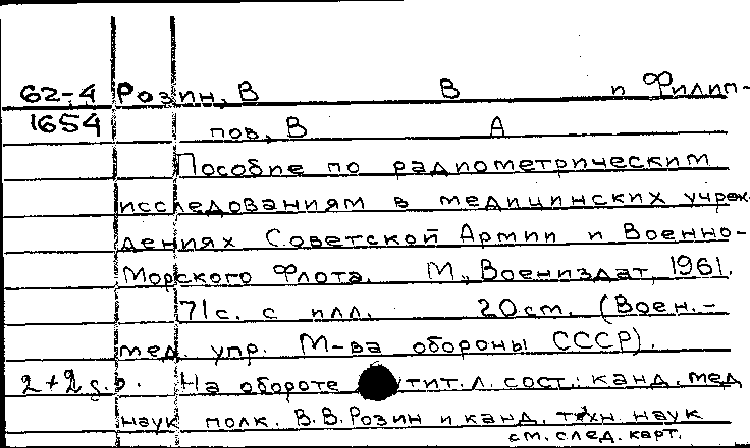 62-4 Розин, В В и Филип-
1654 пов, В А
Пособие по радиометрическим
исследованиям в медицинских учреж-
дениях Советской Армии и Военно-
Морского Флота. М., Воениздат, 1961.
71с. с илл. 20см. (Воен.-
мед. упр. М-ва обороны СССР).
На обороте тит. л. сост.: канд. мед
наук полк. В.В. Розин и канд. техн. наук
см. след. карт.